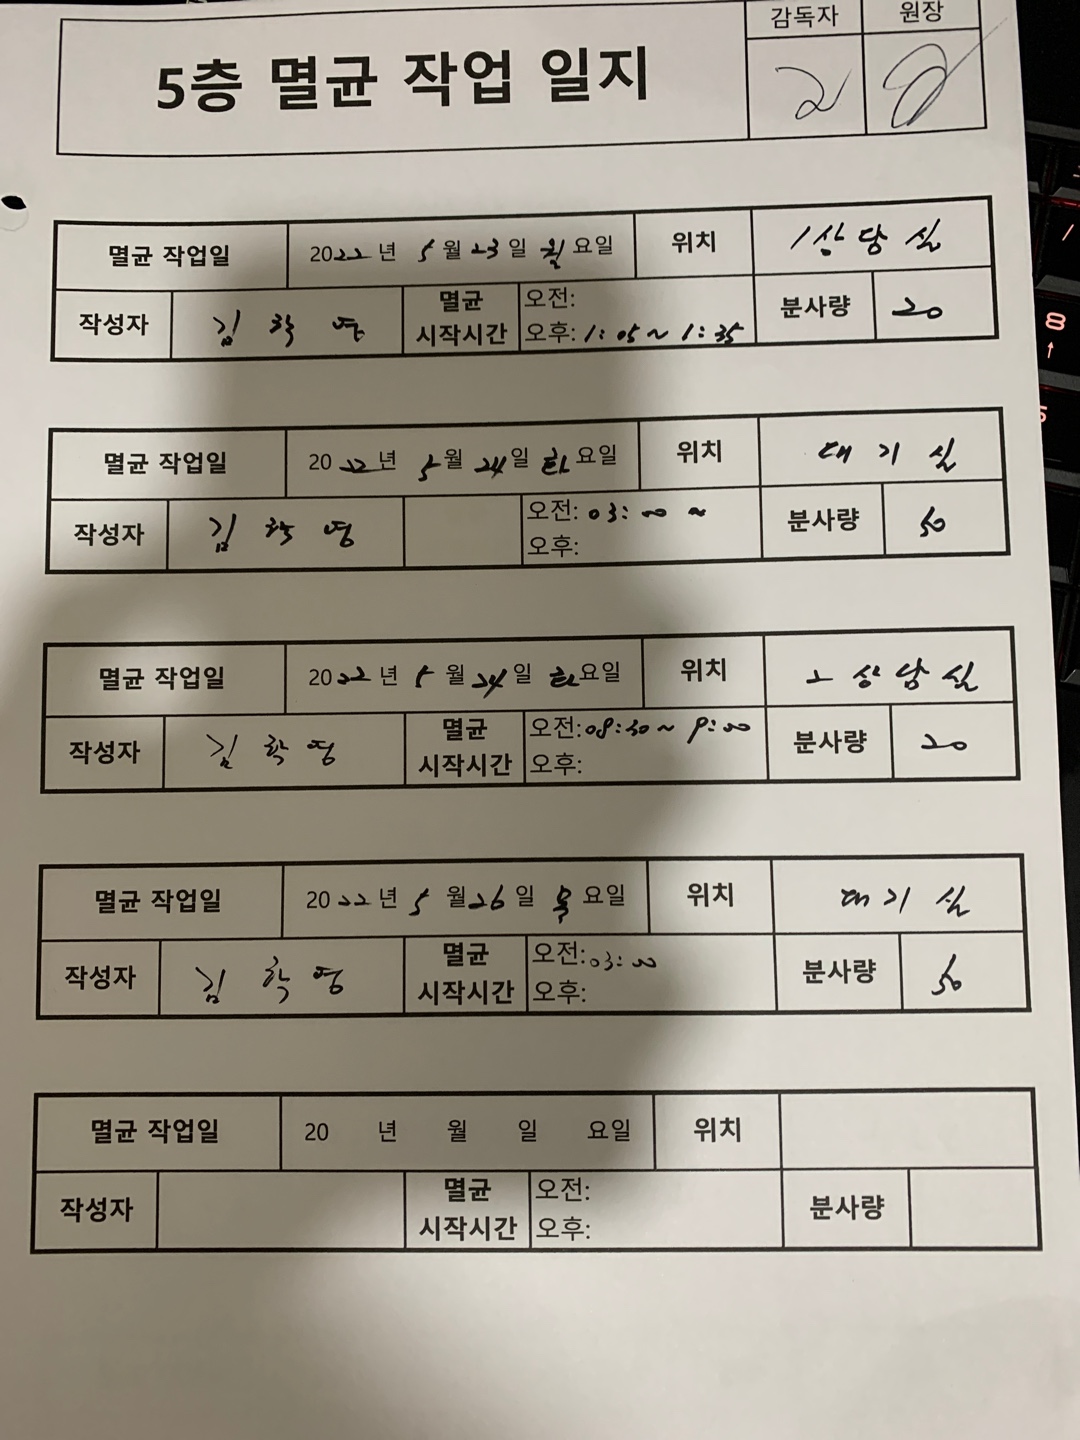 감독자 원장
5층 멸균 작업 일지
멸균 작업일 2022년 5월 23일 월요일 위치 1상담실
작성자 김학영 멸균 시작시간 오전: 분사량 20
오후: 1:05~1:35
멸균 작업일 2022년 5월 24일 화요일 위치 대기실
작성자 김학영 오전: 03:00~ 분사량 50
오후:
멸균 작업일 2022년 5월 24일 화요일 위치 2상담실
작성자 김학영 멸균 시작시간 오전: 08:30~9:00 분사량 20
오후:
멸균 작업일 2022년 5월 26일 목요일 위치 대기실
작성자 김학영 멸균 시작시간 오전: 03:00 분사량 50
오후:
멸균 작업일 20 년 월 일 요일 위치
작성자 멸균 시작시간 오전: 분사량
오후:
8
5